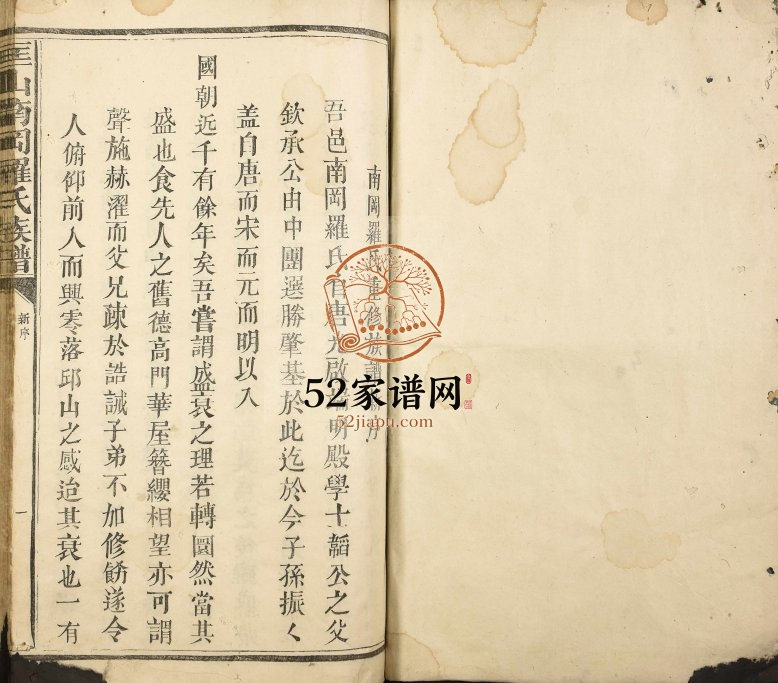 南岡羅氏重修族譜新序
吾邑南岡羅氏自唐光啟端明殿學士韜公之父
欽承公由中團選勝肇基於此迄於今子孫振〱
盖自唐而宋而元而明以入
國朝近千有餘年矣吾嘗謂盛衰之理若轉圜然當其
盛也食先人之舊德高門華屋簪纓相望亦可謂
聲施赫濯而父兄疎於誥誡子弟不加修餝遂令
人俯仰前人而興零落邱山之感迨其衰也一有
山南岡羅氏族譜
新序
一
52家谱网
52jiapu.com